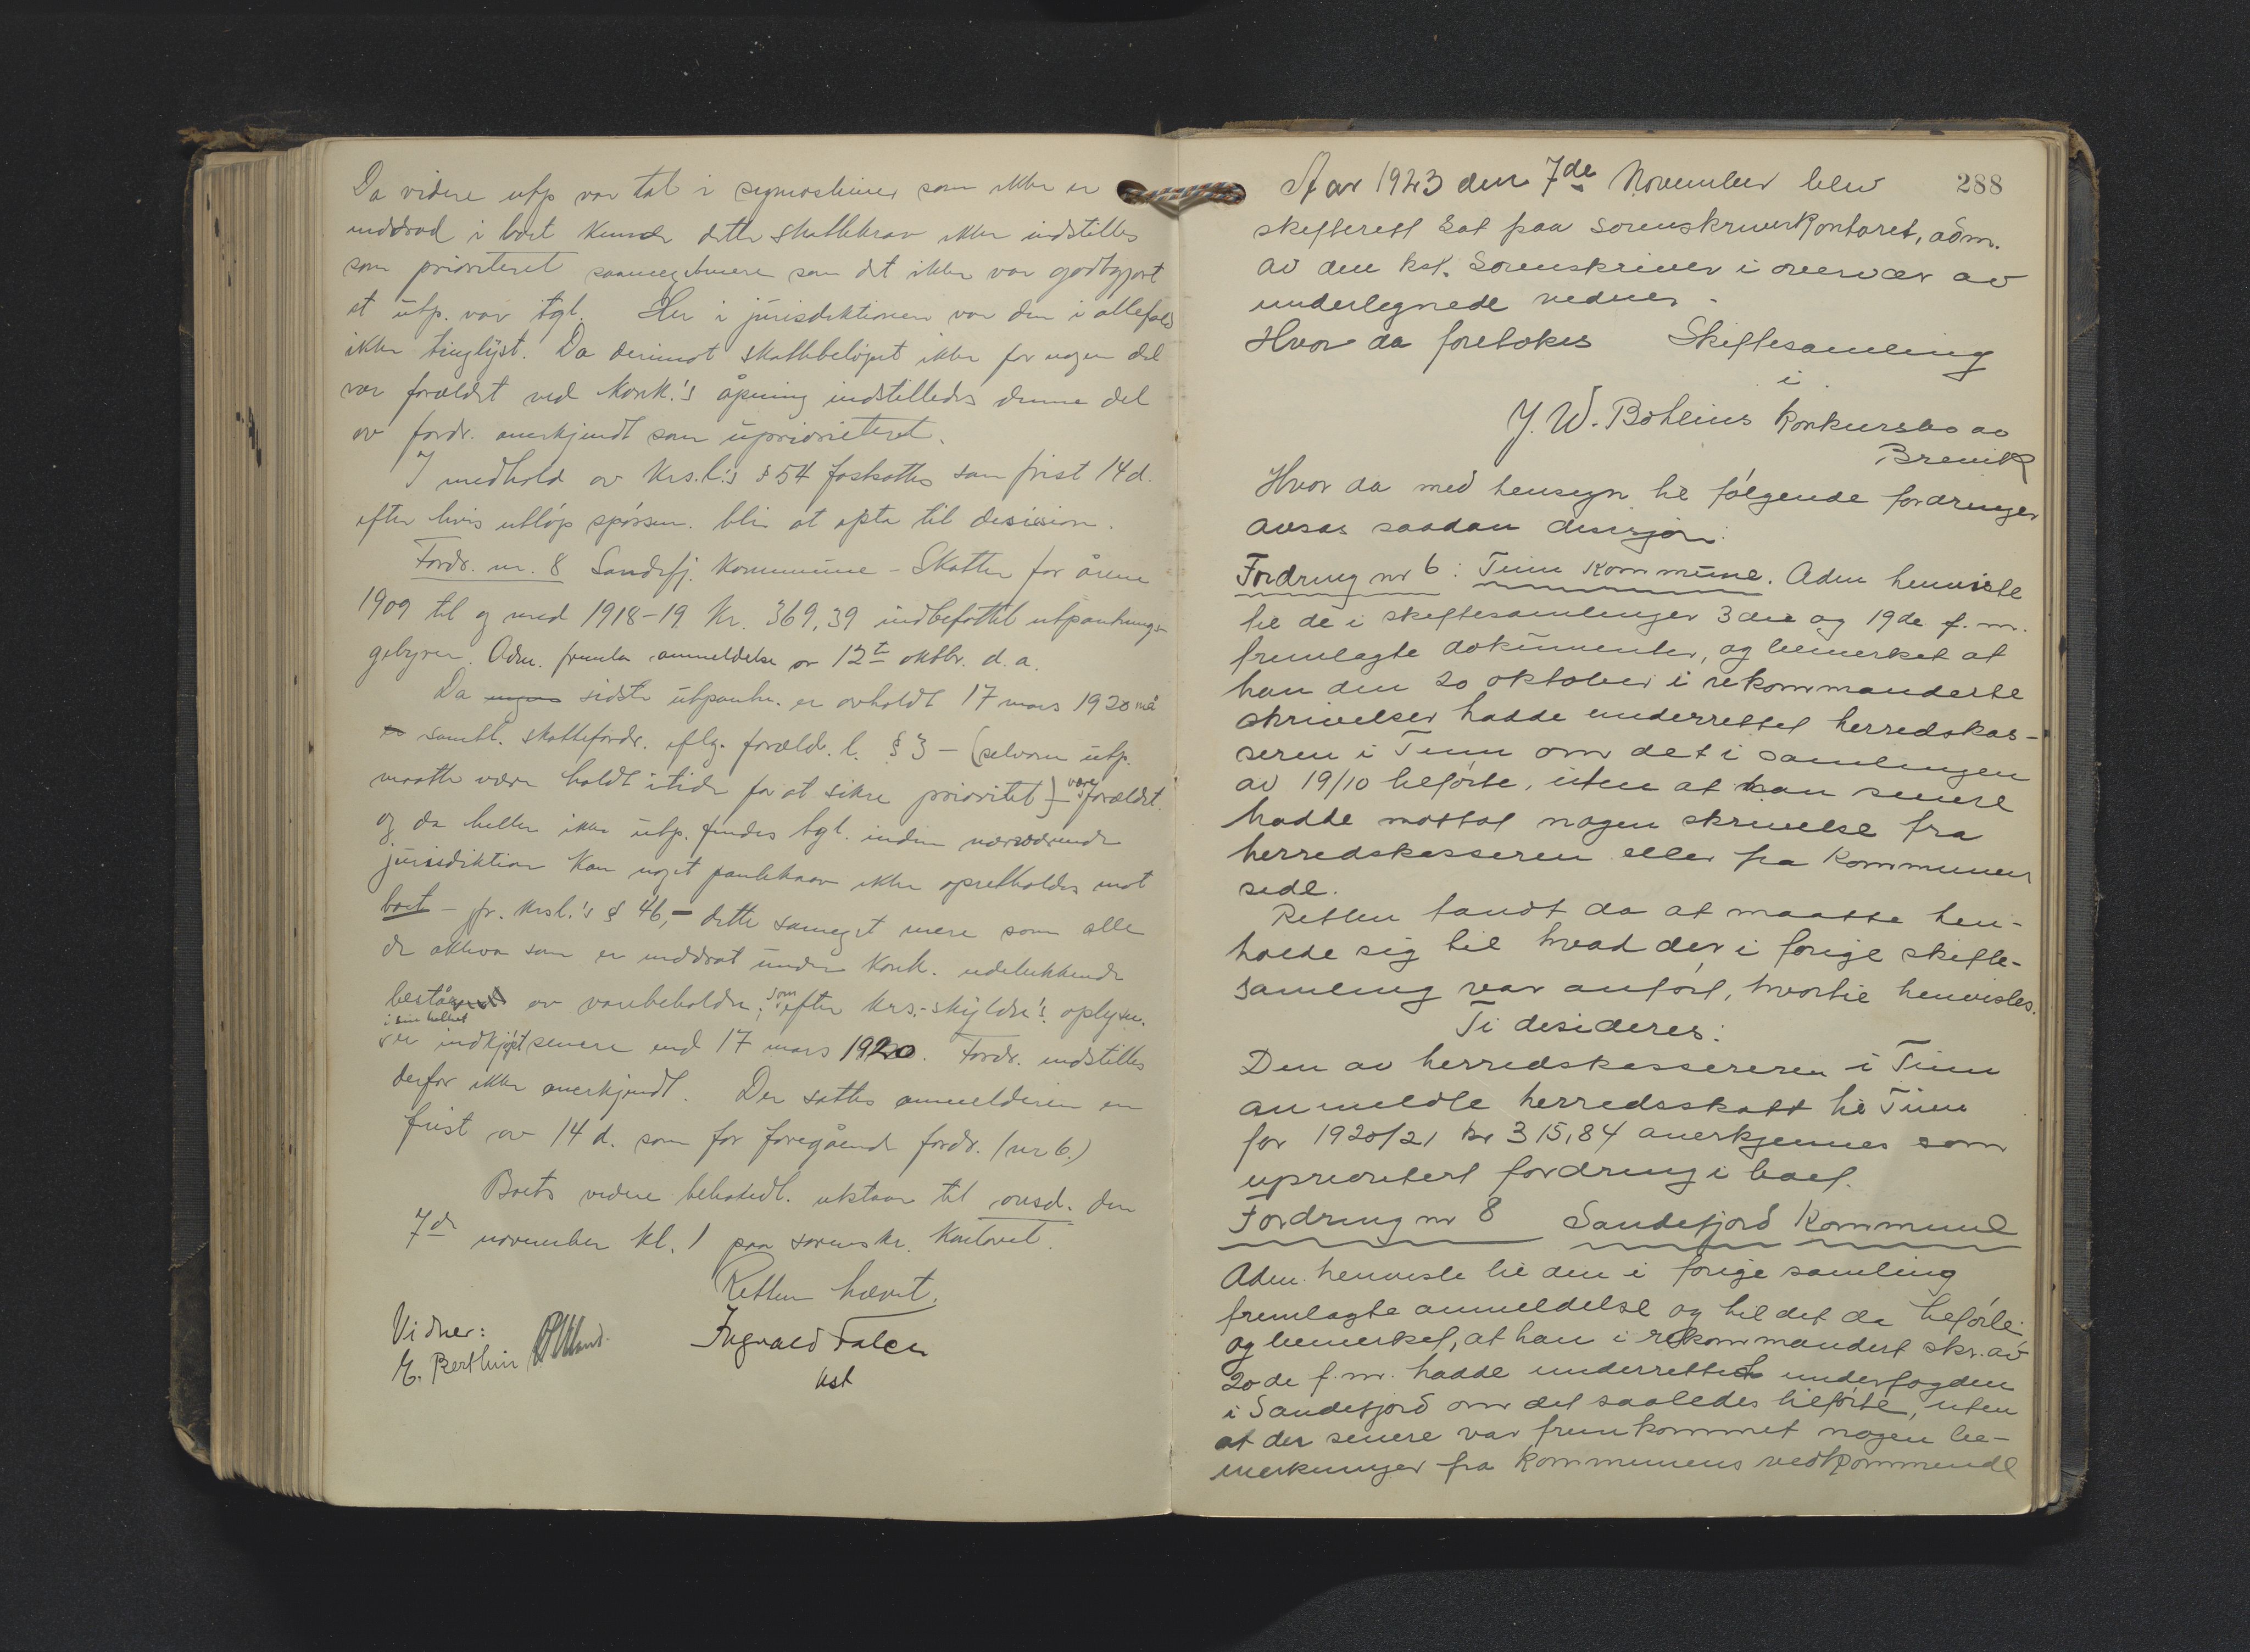 Da videre utp var tat i symaskiner som ikke er
inddrad i boet kunde dette skattekrav ikke indstilles
som prioriteret saameget mere som det ikke var godtgjort
at utp. var tgl. Her i jurisdiktionen var den i allefald
ikke tinglyst. Da derimot skattebeløpet ikke for nogen del
var forældet ved konk.'s åpning indstilledes denne del
av fordr. anerkjendt som uprioriteret.
I medhold av krs.l.'s § 54 fastsattes som frist 14 d.
efter hvis utløp spørsm. blir at opta til desision.
Fordr. nr. 8 Sandefj. kommune - Skatter for årene
1909 til og med 1918-19 Kr. 369,39 indbefattet utpantnings-
gebyrer. Adm. fremla anmeldelse av 12te oktbr. d. a.
Da sidste utpantn. er avholdt 17 mars 1920 må
samtl. skattefordr. iflg. foræld. l. § 3 - (selvom utp.
maatte være holdt itide for at sikre prioritet) - være forældet.
og da heller ikke utp. findes tgl. inden nærværende
jurisdiktion kan noget pantekrav ikke opretholdes mot
boet - jfr. krsl.'s § 46, - dette sameget mere som alle
de aktiva som er inddrat under konk. udelukkende
består av varebeholdn.; som efter krs.-skyldn's. oplysn.
i sin helhet
er indkjøpt senere end 17 mars 1920. Fordr. indstilles
derfor ikke anerkjendt. Der sattes anmelderen en
frist av 14 d. som for foregående fordr. (nr 6.)
Boets videre behandl. utstaar til onsd. den
7de november kl. 1 paa sorenskr. kontoret.
Retten hævet.
Vidner:
E. Berthin
Ingvald Falch
kst
288
Aar 1923 den 7de November blev
skifterett sat paa sorenskriverkontoret, adm.
av den kst. sorenskriver i overvær av
underlegnede vidner.
Hvor da foretokes Skiftesamling
i
J. W. Bohlins konkursbo av
Brevik
Hvor da med hensyn til følgende fordringer
avsas saadan desisjon:
Fordring nr 6: Tinn kommune. Adm henviste
til de i skiftesamlinger 3die og 19de f. m.
fremlagte dokumenter, og bemerket at
han den 20 oktober i rekommanderte
skrivelser hadde underrettet herredskas-
seren i Tinn om det i samlingen
av 19/10 tilførte, uten at han senere
hadde mottat nogen skrivelse fra
herredskasseren eller fra kommunens
side.
Retten fandt da at maatte hen-
holde sig til hvad der i forige skifte-
samling var anført, hvortil henvistes.
Ti desideres:
Den av herredskassereren i Tinn
anmeldte herredsskatt til Tinn
for 1920/21 kr 315,84 anerkjennes som
uprioritert fordring i boet.
Fordring nr 8 Sandefjord Kommune
Adm. henviste til den i forige samling
fremlagte anmeldelse og til det da tilførte
og bemerket, at han i rekommandert skr. av
20de f. m. hadde underrettet underfogden
i Sandefjord om det saaledes tilførte, uten
at der senere var fremkommet nogen be-
merkninger fra kommunens vedkommende